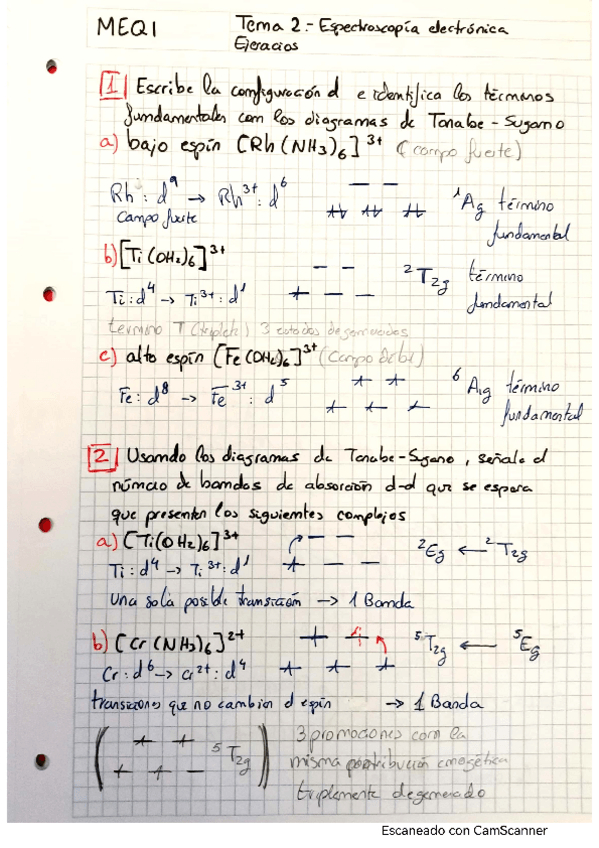 MEQI
Tema 2.- Espectroscopía electrónica
Ejercicios
1 Escribe la configuración d e identifica los términos
fundamentales con los diagramas de Tanabe-Sugano
a) bajo espín [Rh(NH3)6]3+ (campo fuerte)
Rh: d9 → Rh3+: d6
campo fuerte
1Ag término
fundamental
b) [Ti(OH2)6]3+
Ti: d4 → Ti3+: d1
2T2g término
fundamental
término T (triplete) 3 estados degenerados
c) alto espín [Fe(OH2)6]3+ (campo débil)
Fe: d8 → Fe3+: d5
6A1g término
fundamental
2 Usando los diagramas de Tanabe-Sugano, señale el
número de bandas de absorción d-d que se espera
que presenten los siguientes complejos
a) [Ti(OH2)6]3+
Ti: d4 → Ti3+: d1
2Eg ← 2T2g
Una sola posible transición → 1 Banda
b) [Cr(NH3)6]2+
Cr: d6 → Cr2+: d4
5T2g ← 5Eg
transiciones que no cambian el espín → 1 Banda
5T2g
3 promociones con la
misma contribución energética
triplemente degenerado
Escaneado con CamScanner